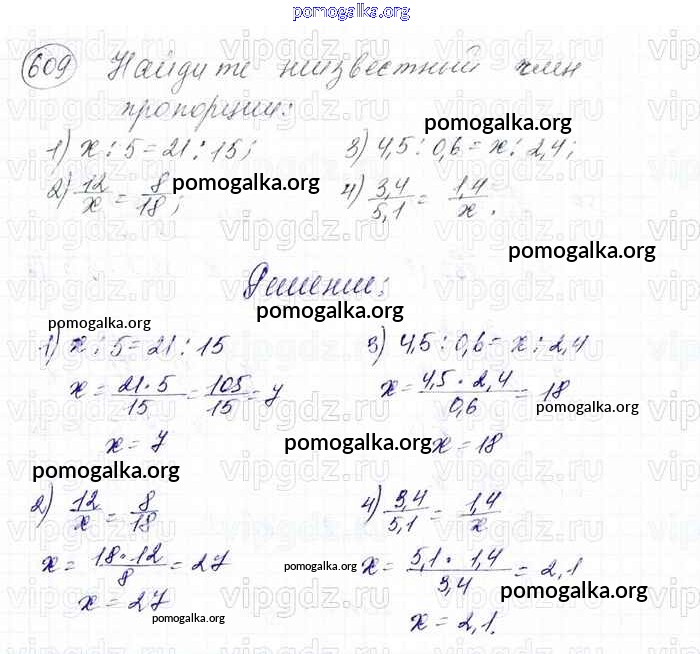 pomogalka.org
609 Найдите неизвестный член
пропорции:
pomogalka.org
1) x : 5 = 21 : 15; 3) 4,5 : 0,6 = x : 2,4;
2) 12/x = 8/18; pomogalka.org 4) 3,4/5,1 = 1,4/x.
pomogalka.org
Решение:
pomogalka.org
pomogalka.org
1) x : 5 = 21 : 15 3) 4,5 : 0,6 = x : 2,4
x = 21·5/15 = 105/15 = 7 x = 4,5·2,4/0,6 = 18
pomogalka.org
x = 7 pomogalka.org x = 18
pomogalka.org
2) 12/x = 8/18 4) 3,4/5,1 = 1,4/x
pomogalka.org
x = 18·12/8 = 27 x = 5,1·1,4/3,4 = 2,1
pomogalka.org
x = 27 x = 2,1.
pomogalka.org
vipgdz.ru